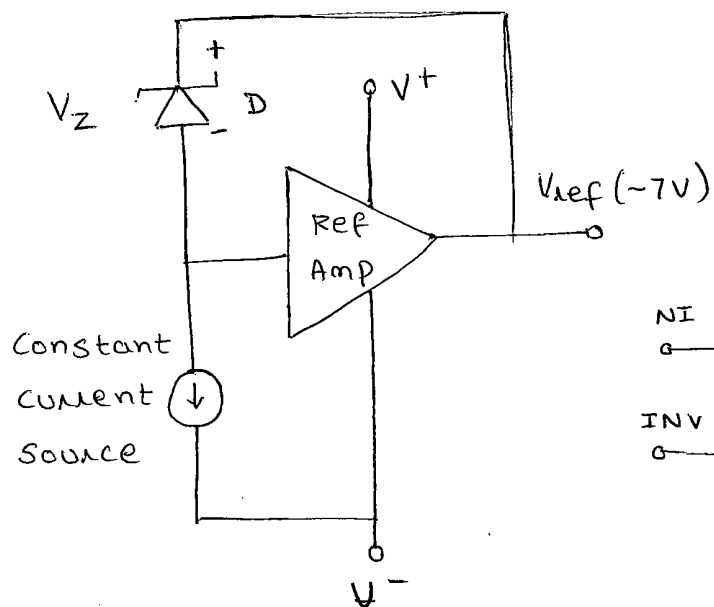 +
V_Z
D
-
V+
Ref
Amp
Vref (~7V)
Constant
current
source
NI
INV
V-